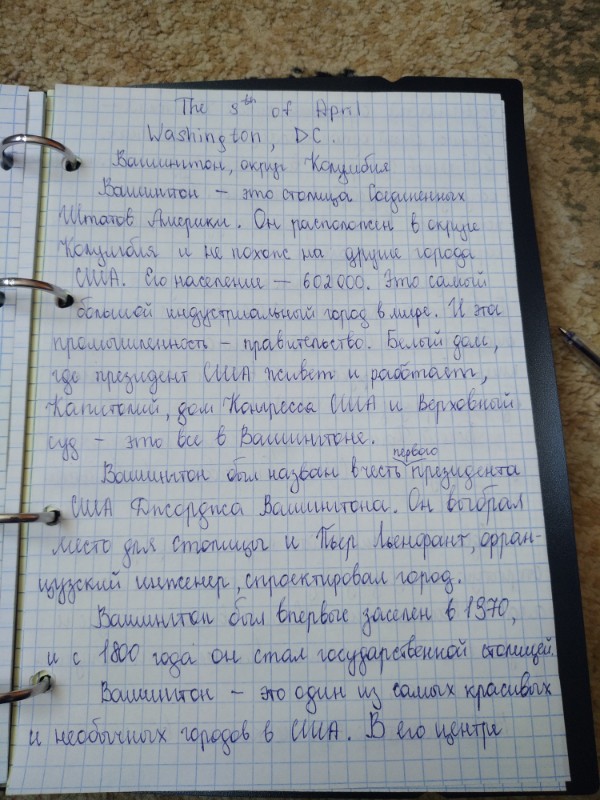 The 5th of April
Washington, DC.
Вашингтон, округ Колумбия
Вашингтон – это столица Соединенных
Штатов Америки. Он расположен в округе
Колумбия и не похож на другие города
США. Его население – 602000. Это самый
большой индустриальный город в мире. И эта
промышленность – правительство. Белый дом,
где президент США живет и работает,
Капитолий, дом Конгресса США и Верховный
суд – это все в Вашингтоне.
Вашингтон был назван в честь первого президента
США Джорджа Вашингтона. Он выбрал
место для столицы и Пьер Льенфант, фран-
цузский инженер, спроектировал город.
Вашингтон был впервые заселен в 1970,
и с 1800 года он стал государственной столицей.
Вашингтон – это один из самых красивых
и необычных городов в США. В его центре